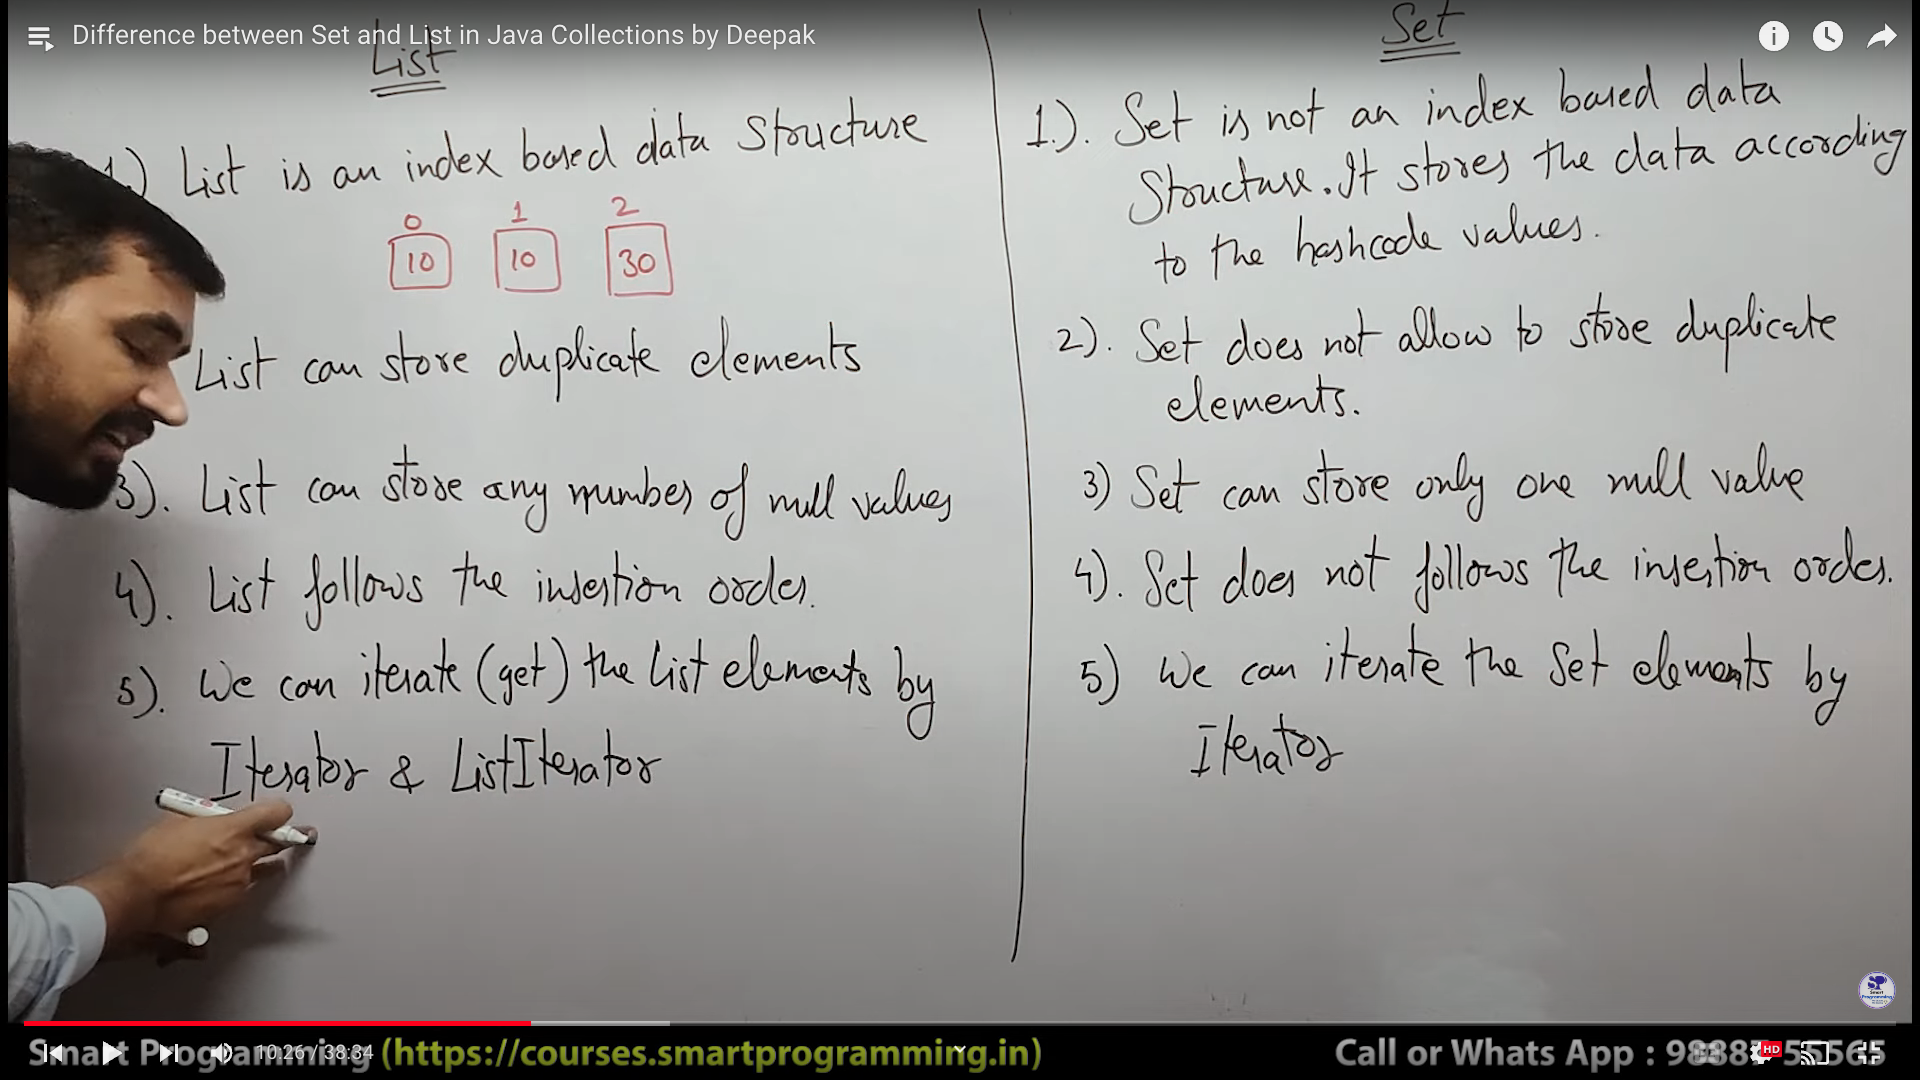 Difference between Set and List in Java Collections by Deepak
List
1.) List is an index based data Structure
0 1 2
10 10 30
List can store duplicate elements
3). List can store any number of null values
4). List follows the insertion order.
5). We can iterate (get) the List elements by
Iterator & ListIterator
Set
1.). Set is not an index based data
Structure. It stores the data according
to the hashcode values.
2). Set does not allow to store duplicate
elements.
3) Set can store only one null value
4). Set does not follows the insertion order.
5) We can iterate the Set elements by
Iterator
Smart Programming
Smart Programming (https://courses.smartprogramming.in)
10:26 / 38:34
Call or Whats App :
HD